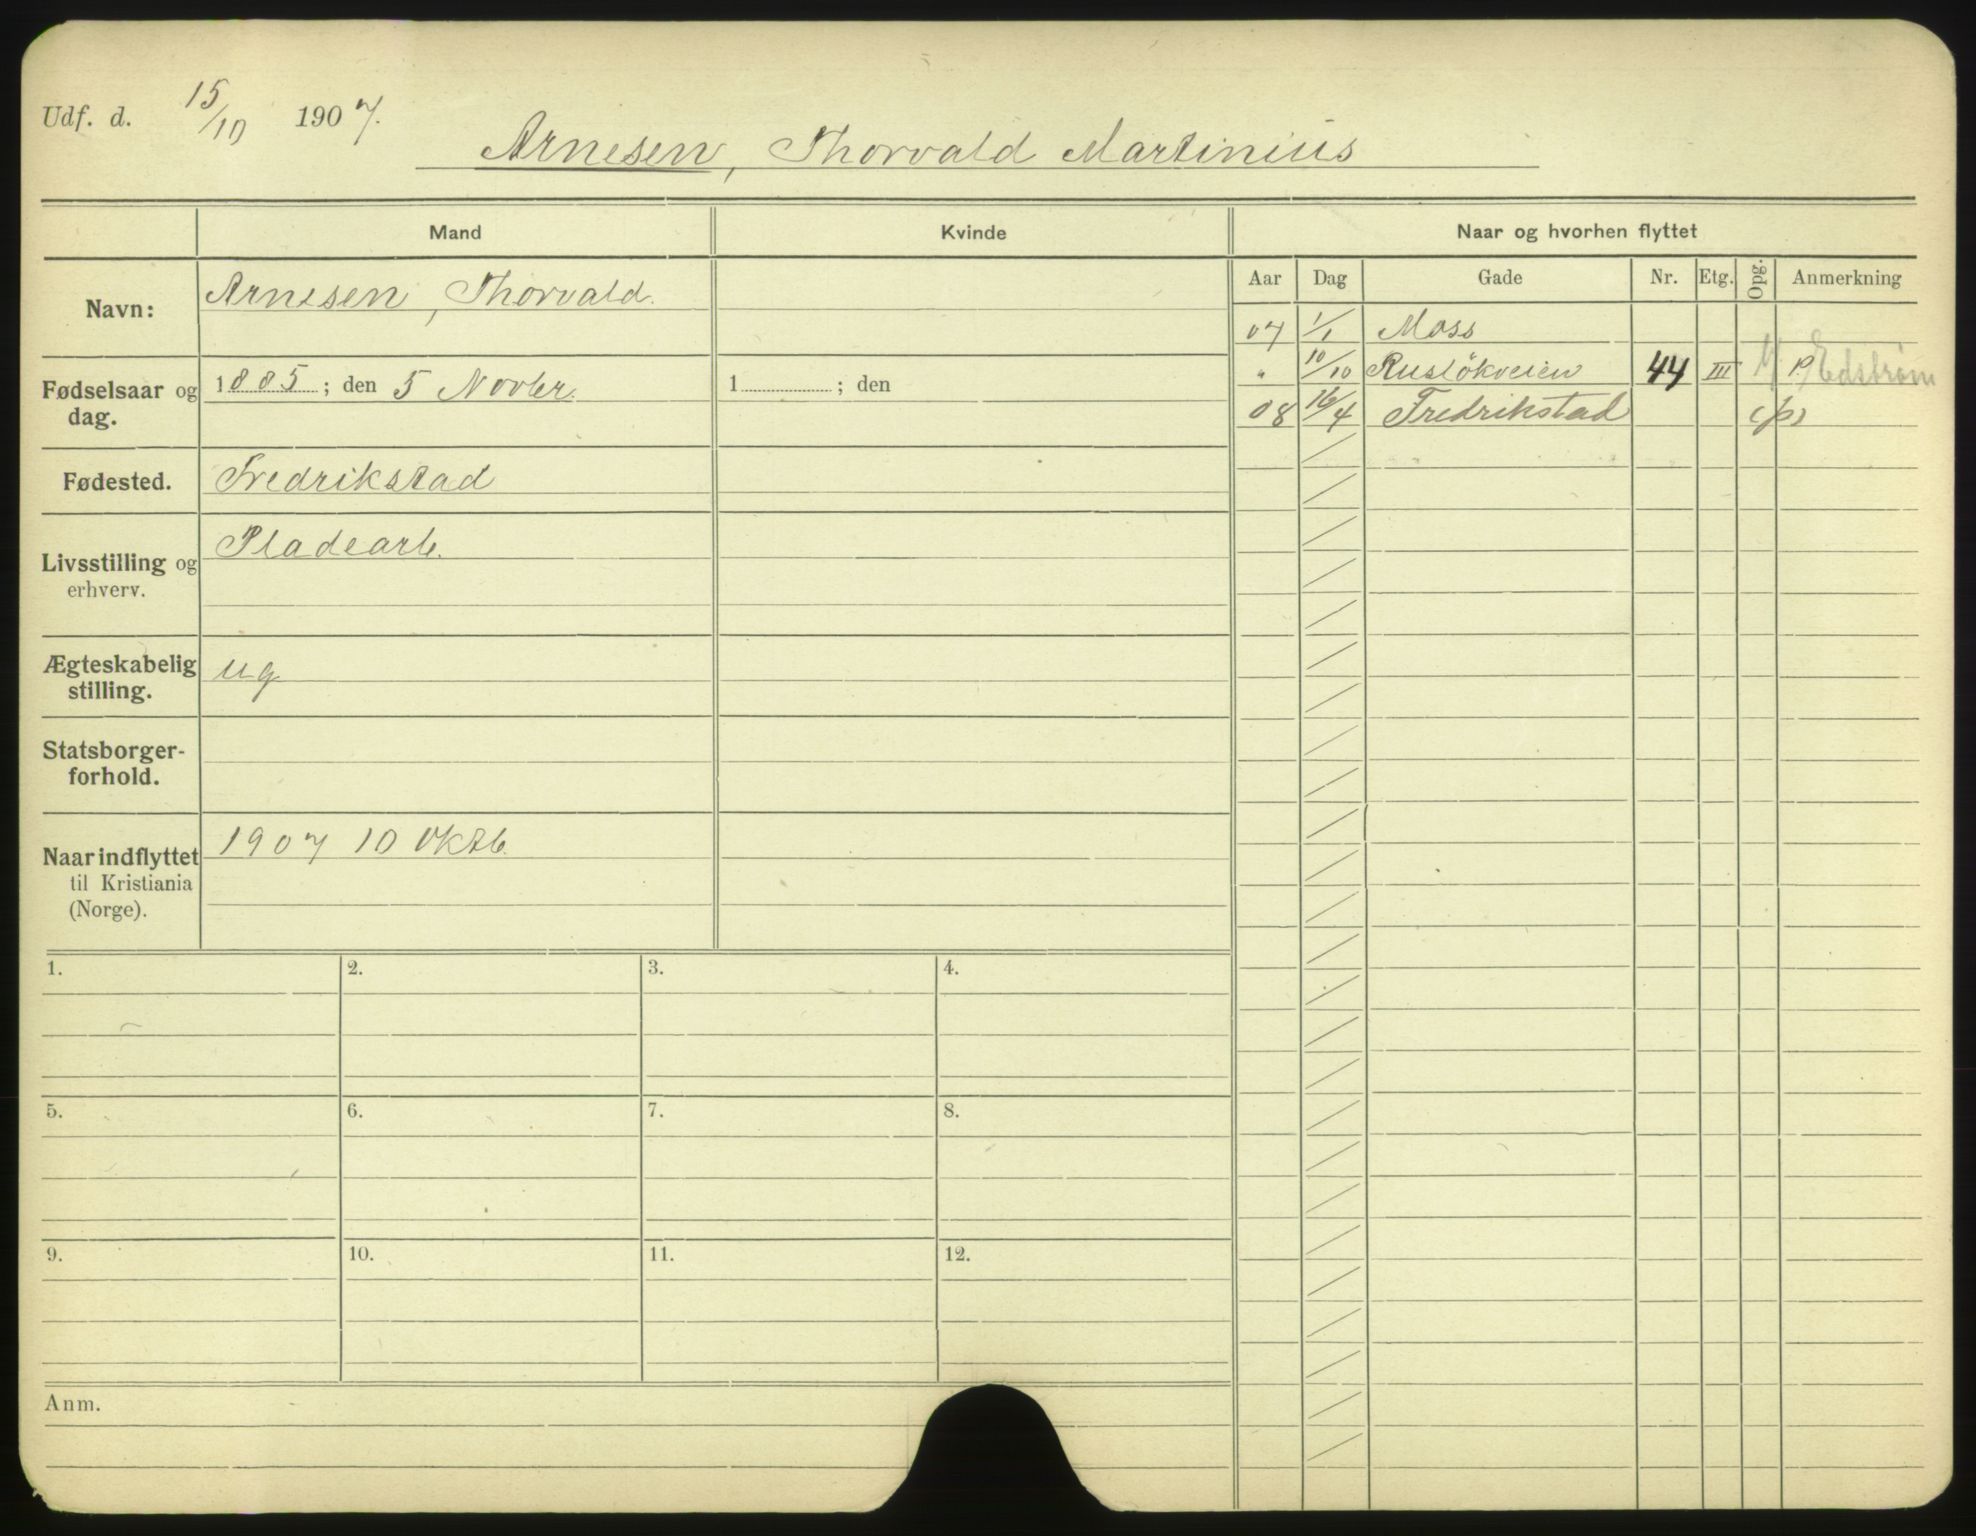 Udf. d. 15/10 1907.
Arnesen, Thorvald Martinius
Mand
Kvinde
Naar og hvorhen flyttet
Navn: Arnesen, Thorvald.
Fødselsaar og dag. 1885; den 5 Novbr.
1 ; den
Fødested. Fredrikstad
Livsstilling og erhverv. Pladearb.
Ægteskabelig stilling. ug
Statsborger-
forhold.
Naar indflyttet til Kristiania (Norge). 1907 10 Oktb.
Aar Dag Gade Nr. Etg. Opg. Anmerkning
07 1/1 Moss
" 10/10 Rusløkveien 44 III P. Edstrøm
08 16/4 Fredrikstad (p)
1. 2. 3. 4.
5. 6. 7. 8.
9. 10. 11. 12.
Anm.